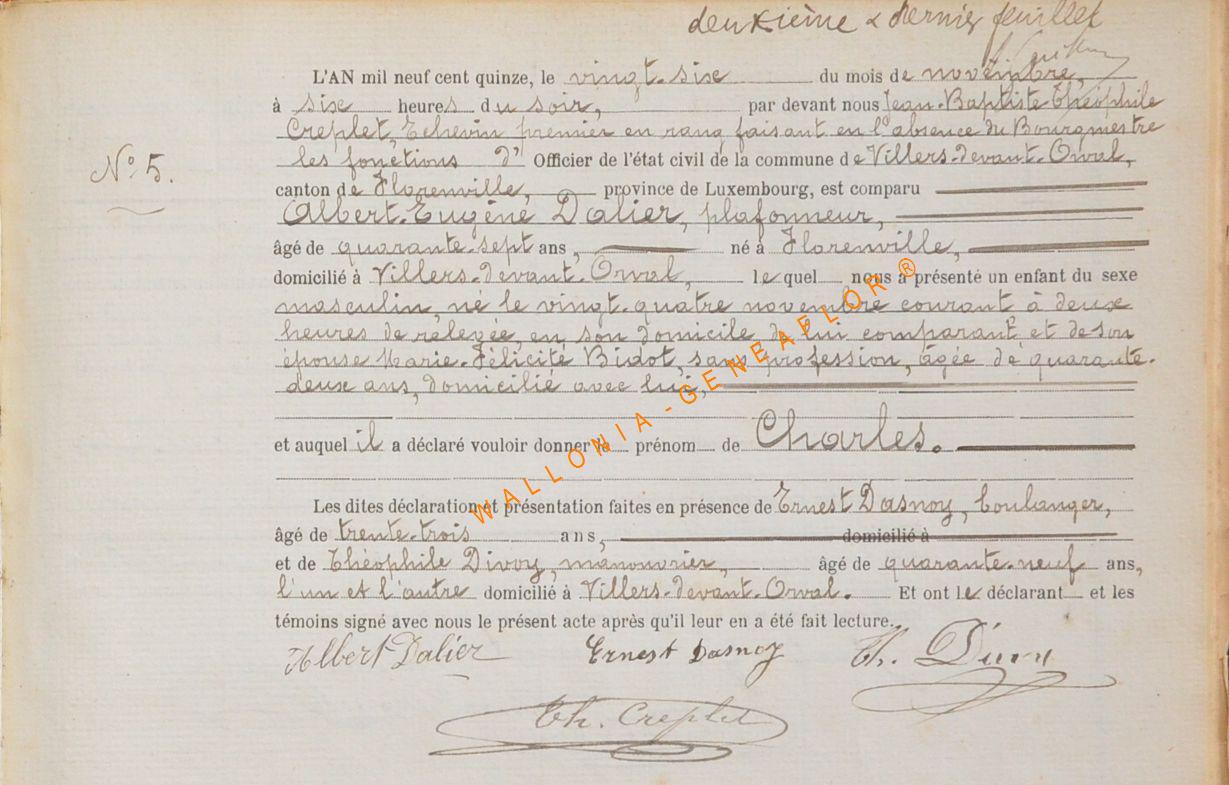 deuxième & dernier feuillet
L'AN mil neuf cent quinze, le vingt-six du mois de novembre,
à six heures du soir, par devant nous Jean-Baptiste Théophile
Creplet, Echevin premier en rang faisant en l'absence du Bourgmestre
les fonctions d' Officier de l'état civil de la commune de Villers-devant-Orval,
N° 5.
canton de Florenville, province de Luxembourg, est comparu
Albert-Eugène Dalier, plafonneur,
âgé de quarante-sept ans, né à Florenville,
domicilié à Villers-devant-Orval, lequel nous a présenté un enfant du sexe
masculin, né le vingt-quatre novembre courant à deux
heures de relevée, en son domicile de lui comparant et de son
épouse Marie-Félicité Bidot, sans profession, âgée de quarante-
deux ans, domicilié avec lui,
et auquel il a déclaré vouloir donner le prénom de Charles.
Les dites déclaration et présentation faites en présence de Ernest Dasnoy, boulanger,
âgé de trente-trois ans, domicilié à
et de Théophile Divoy, manouvrier, âgé de quarante-neuf ans,
l'un et l'autre domicilié à Villers-devant-Orval. Et ont le déclarant et les
témoins signé avec nous le présent acte après qu'il leur en a été fait lecture.
Albert Dalier Ernest Dasnoy Th. Divoy
Th. Creplet
WALLONIA-GENEAFLOR®